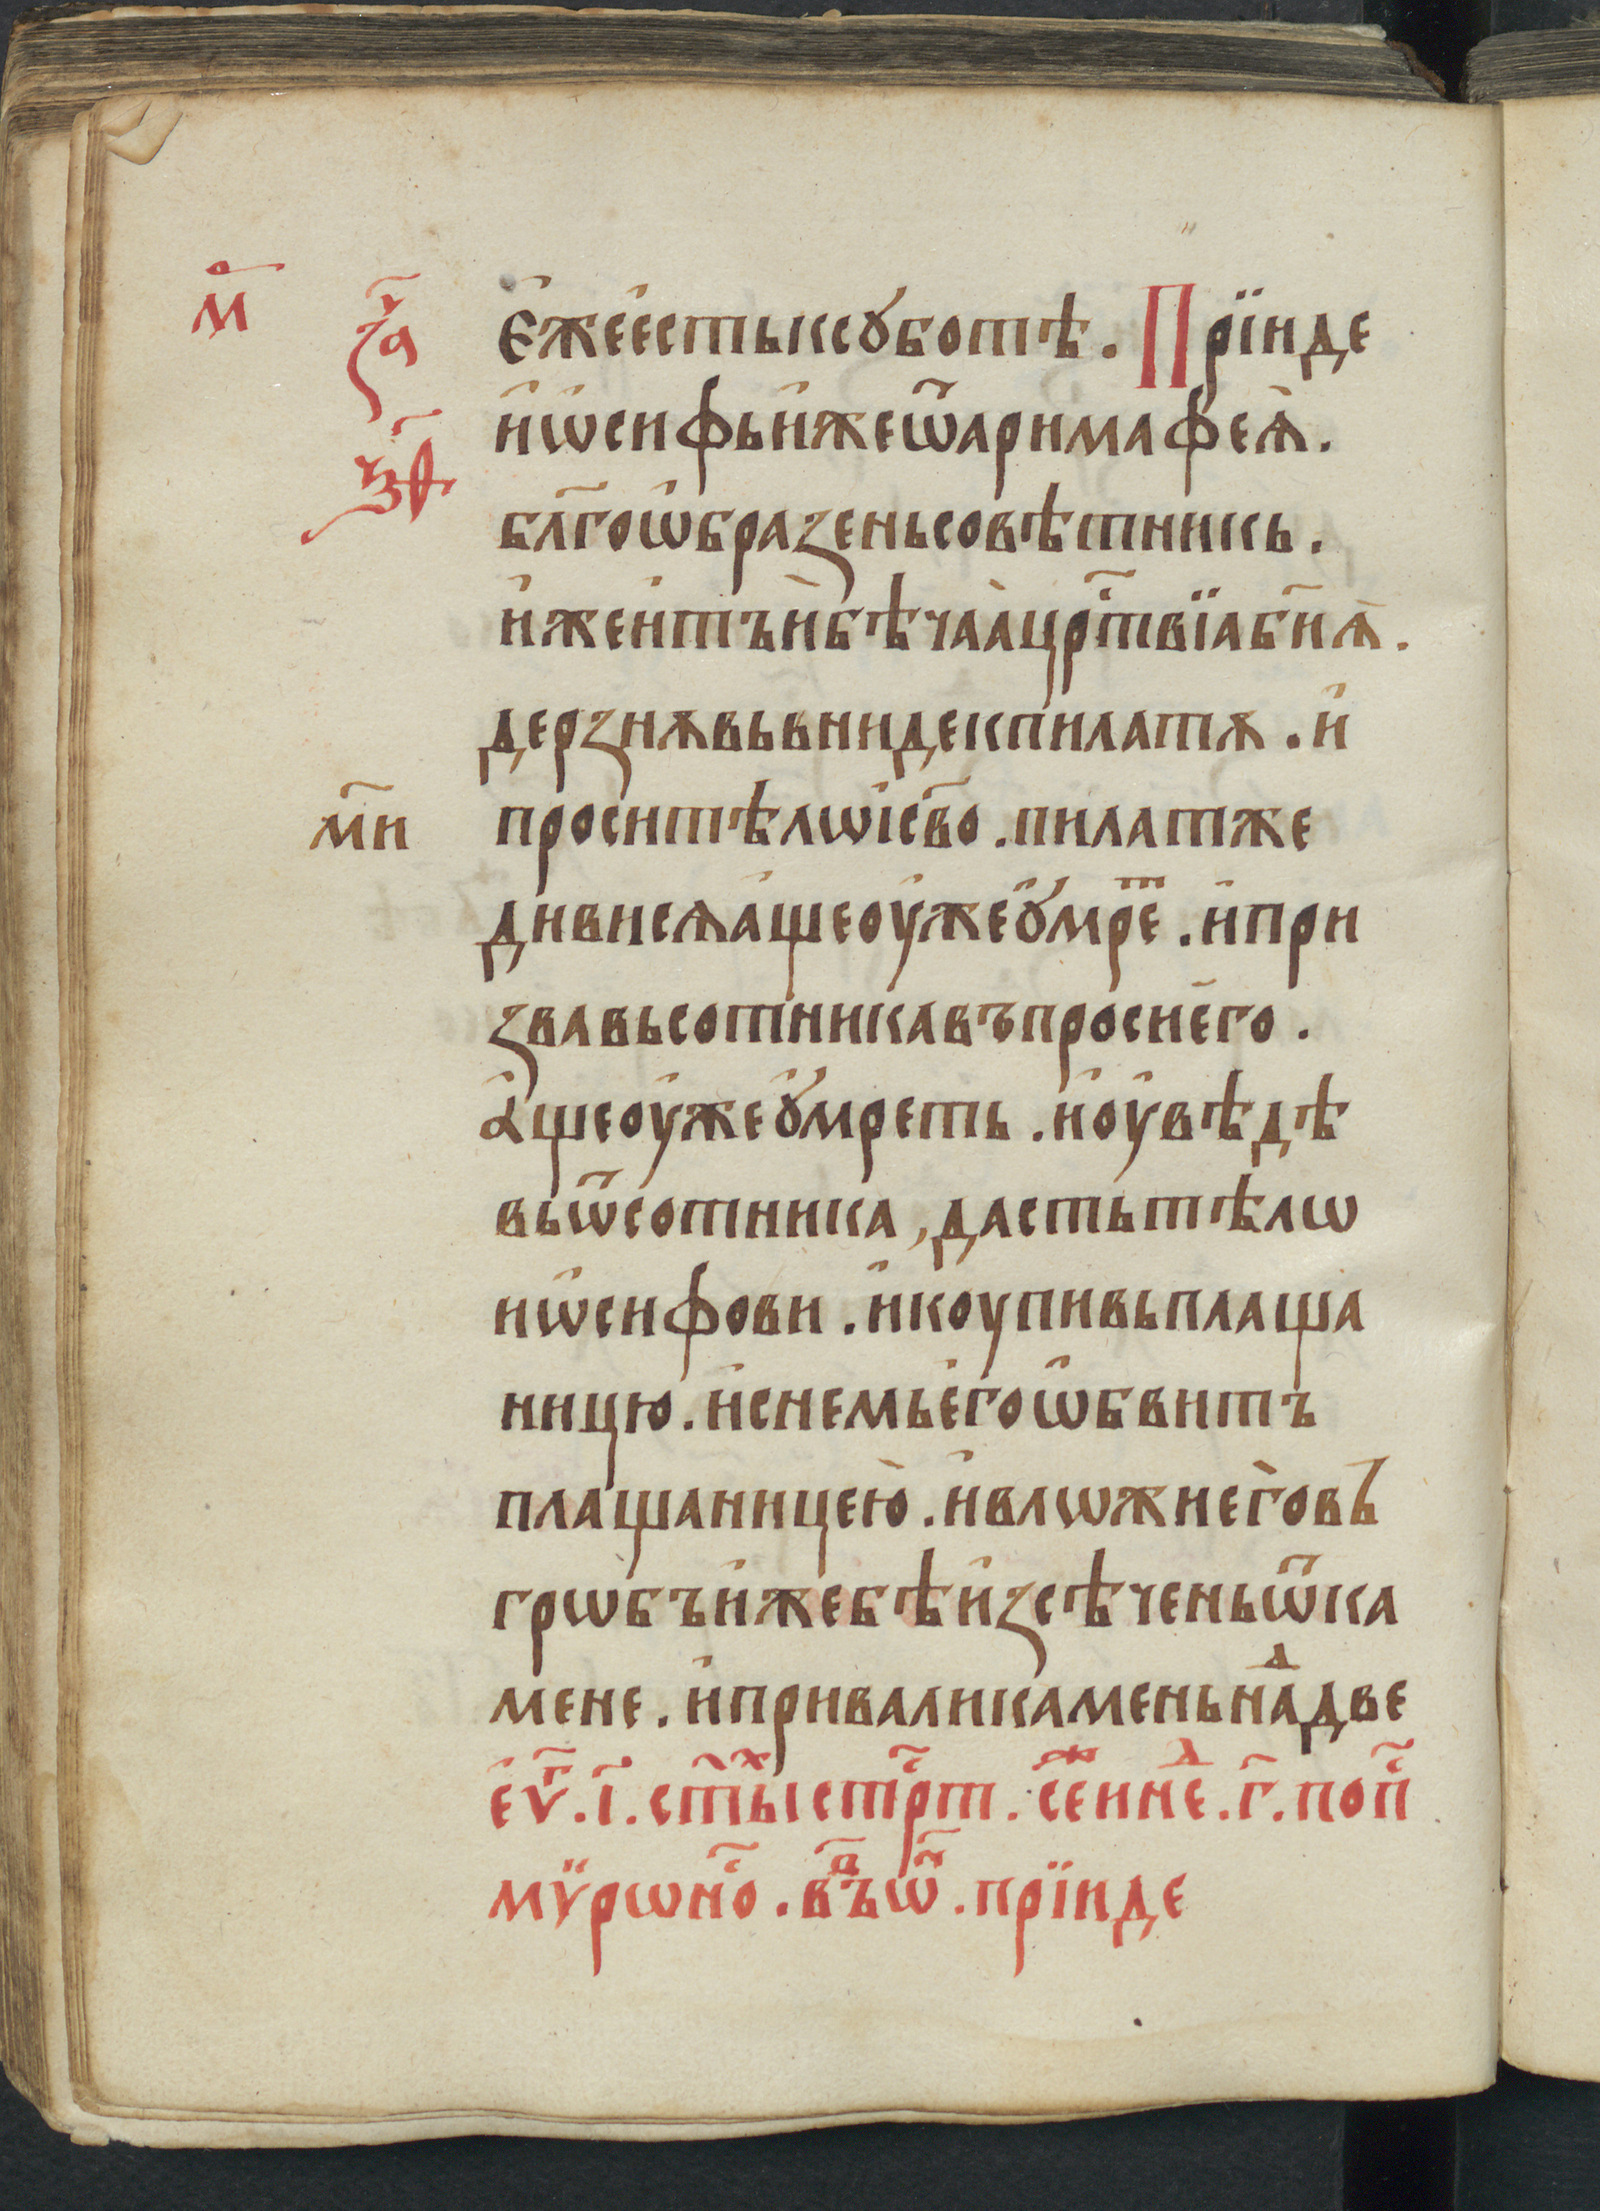 м҃
є҆жее҆стьксꙋботѣ. Прїиде
и҆ѡсифьи҆жеѿаримафеѧ̀.
бл҃гоѡ҆бразеньсовѣтникь.
и҆жеи҆тъи̇бѣчаѧ̀црⷭ҇твїаб҃иѧ̀.
дерзнѧвьвнидекпилатꙋ. и҆
м҃и
проситѣлѡі҆с҃во. пилатже
дивисѧа҆щеоу҆жеꙋ҆мреⷮ. и҆при
звавьсотникавъпросие҆го.
а҆щеоу҆жеꙋ҆мреть. и҆оу҆вѣдѣ
вьѿсотника, дастьтѣлѡ
иѡ҆сифови. и҆коупивьплаща
ницю. и҆снемье҆гоѡ҆бвитъ
плащаницею̀. и҆влѡжие҆говъ
грѡбъи҆жебѣи҆зсѣченьѿка
мене. и҆приваликаменьнаⷣдве
е҆ѵⷢ҇. і҃. ст҃ыⷯстрⷭ҇т. сⷤ҇еинⷣе. г҃. попⷭ҇
мѵ̈рѡнⷭ҇о. вⷫ҇ъѿ. прїиде